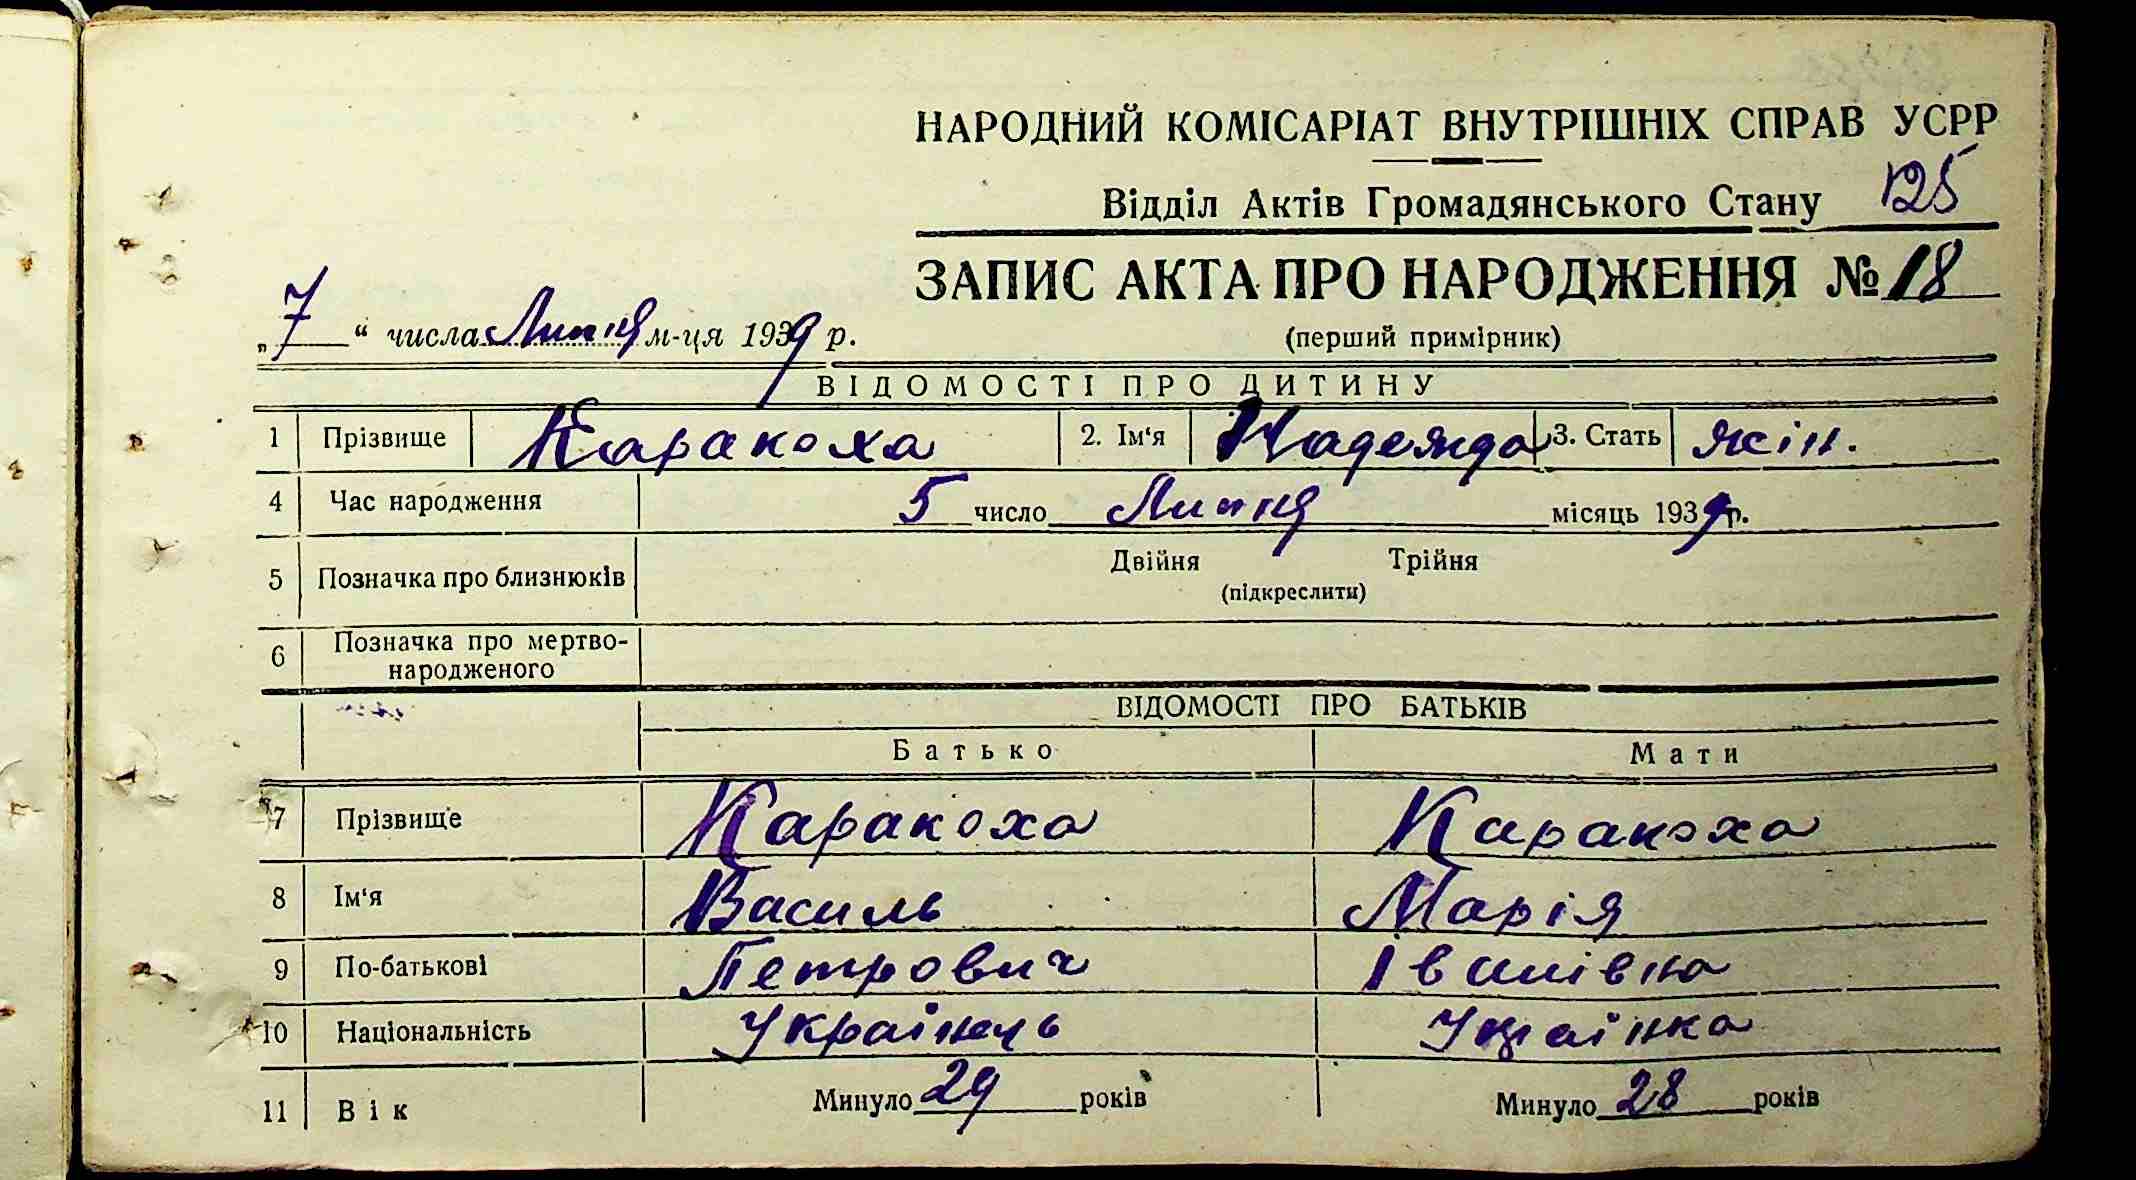 НАРОДНИЙ КОМІСАРІАТ ВНУТРІШНІХ СПРАВ УСРР
Відділ Актів Громадянського Стану 125
ЗАПИС АКТА ПРО НАРОДЖЕННЯ № 18
„7“ числа Липня м-ця 1939 р. (перший примірник)
ВІДОМОСТІ ПРО ДИТИНУ
1 Прізвище Каракоха 2. Ім‘я Надежда 3. Стать жін.
4 Час народження 5 число Липня місяць 1939 р.
5 Позначка про близнюків Двійня Трійня
(підкреслити)
6 Позначка про мертво-
народженого
ВІДОМОСТІ ПРО БАТЬКІВ
Батько Мати
7 Прізвище Каракоха Каракоха
8 Ім‘я Василь Марія
9 По-батькові Петрович Іванівна
10 Національність Українець Українка
11 Вік Минуло 29 років Минуло 28 років